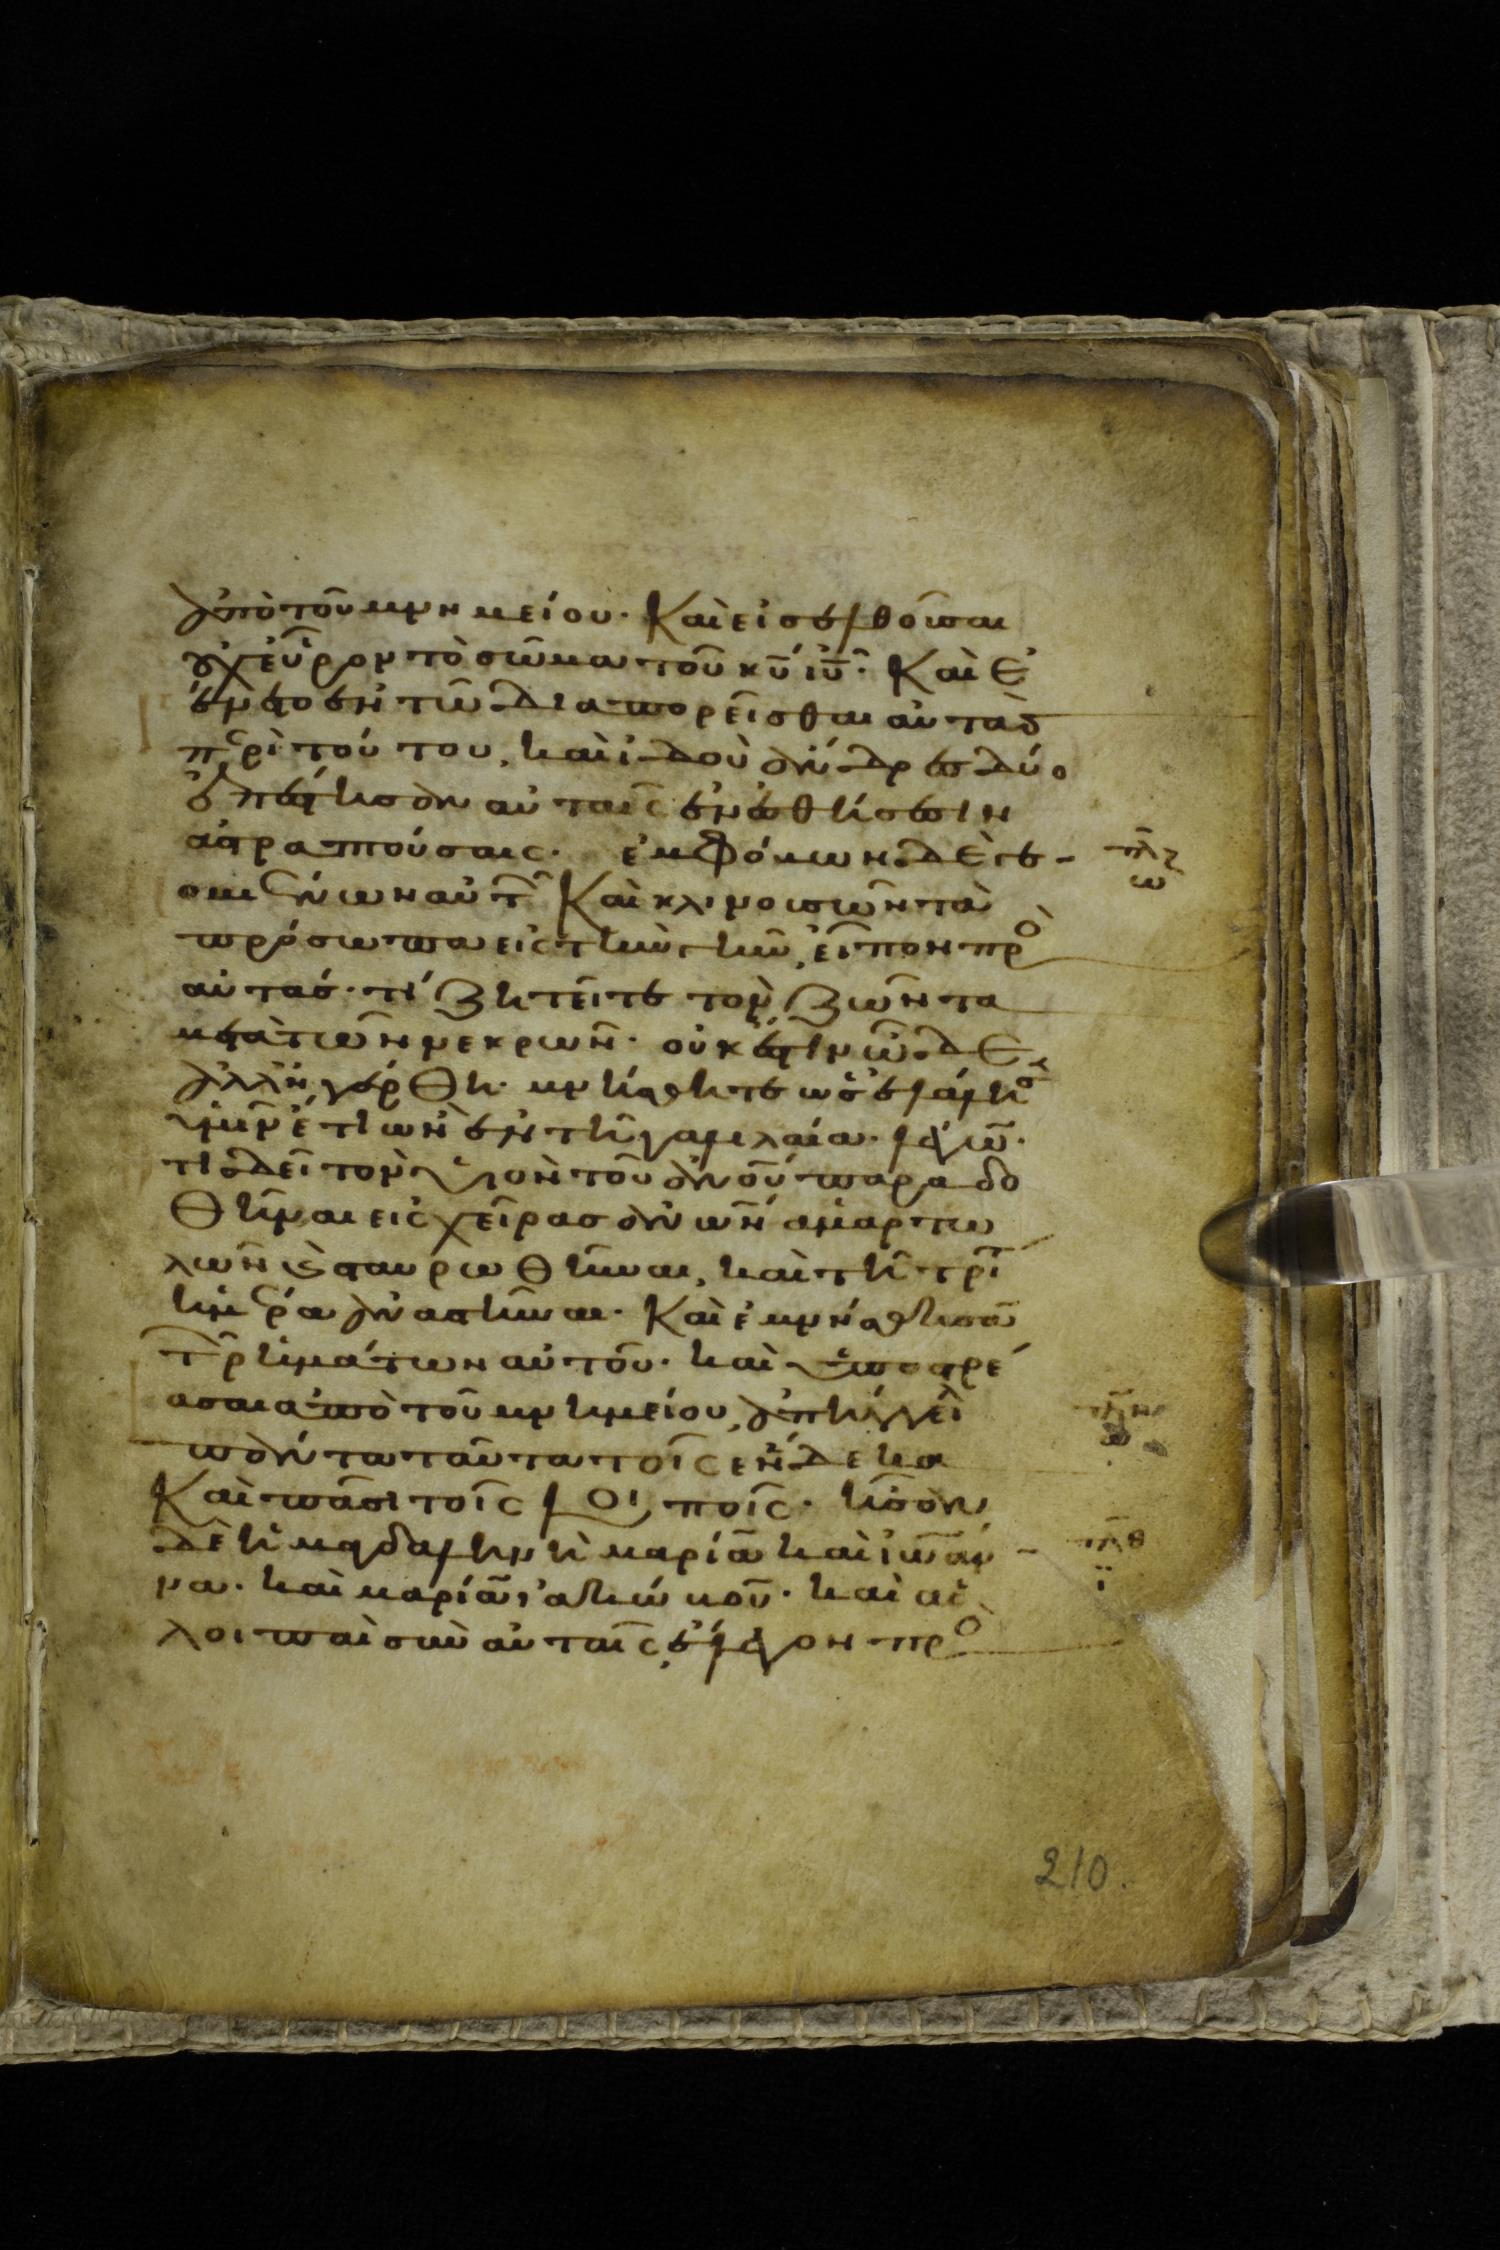 ἀπὸ τοῦ μνημείου· Καὶ εἰσελθοῦσαι
οὐχ εὗρον τὸ σῶμα τοῦ κ̅υ̅ ι̅υ̅· Καὶ ἐ
γένετο ἐν τῶ διαπορεῖσθαι αὐτὰς
περὶ τούτου, καὶ ἰδοὺ ἄνδρες δύο
ἐπέστησαν αὐταῖς ἐν ἐσθήσεσιν
ἀστραπτούσαις· ἐμφόβων δὲ γε
νομένων αὐτῶν Καὶ κλινουσῶν τὰ
πρόσωπα εἰς τὴν γῆν, εἶπον πρὸς
αὐτάς· τί ζητεῖτε τὸν ζῶντα
μετὰ τῶν νεκρῶν· οὐκ ἔστιν ὧδε
ἀλλ' ἠγέρθη· μνήσθητε ὡς ἐλάλησεν
ὑμῖν ἔτι ὢν ἐν τῆ γαλιλαία· λέγων·
ὅτι δεῖ τὸν υἱὸν τοῦ ἀνου παραδο
θῆναι εἰς χεῖρας ἀνων ἁμαρτω
λῶν καὶ σταυρωθῆναι, καὶ τῆ τρίτη
ἡμέρα ἀναστῆναι· Καὶ ἐμνήσθησαν
τῶν ῥημάτων αὐτοῦ· καὶ ὑποστρέ
ψασαι ἀπὸ τοῦ μνημείου, ἀπήγγειλαν
πάντα ταῦτα τοῖς ἕνδεκα
Καὶ πᾶσι τοῖς λοιποῖς· ἦσαν
δὲ ἡ μαγδαληνὴ μαρία καὶ ἰωάν
να· καὶ μαρία ἰακώβου· καὶ αἱ
λοιπαὶ σὺν αὐταῖς, ἔλεγον πρὸς
210.